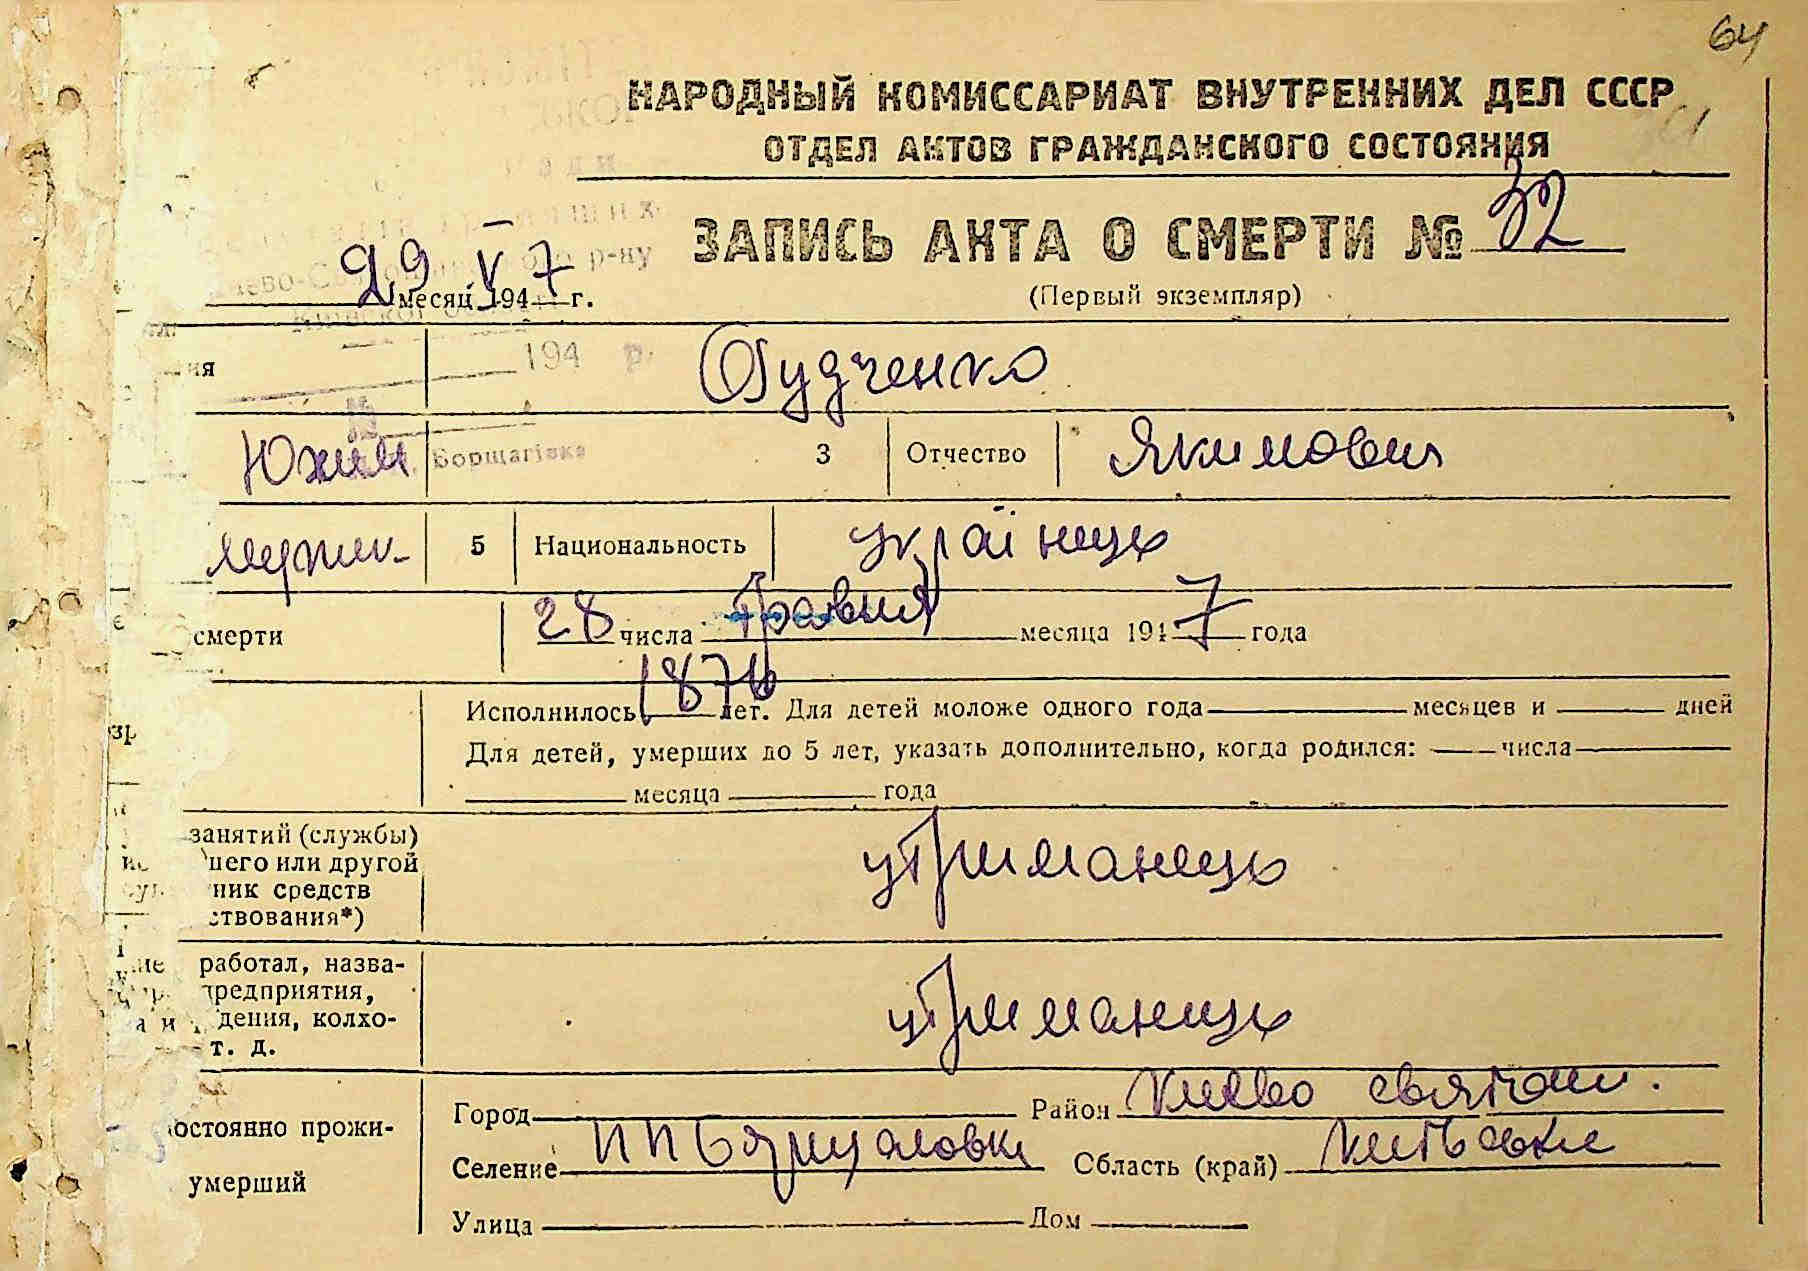 64
НАРОДНЫЙ КОМИССАРИАТ ВНУТРЕННИХ ДЕЛ СССР
ОТДЕЛ АКТОВ ГРАЖДАНСКОГО СОСТОЯНИЯ
ЗАПИСЬ АКТА О СМЕРТИ № 32
29 месяц V 1947 г.
(Первый экземпляр)
194 р.
ия Дудченко
№
Юхим Борщагівка 3 Отчество Якимович
5 Национальность українець
смерти 28 числа травня месяца 1947 года
Исполнилось 1876 лет. Для детей моложе одного года месяцев и дней
зр
Для детей, умерших до 5 лет, указать дополнительно, когда родился: числа
месяца года
занятий (службы)
шего или другой утриманець
ник средств
ствования*)
работал, назва-
предприятия,
дения, колхо- утриманець
т. д.
Город Район Києво святош.
остоянно прожи-
Селение Область (край)
умерший
Улица Дом